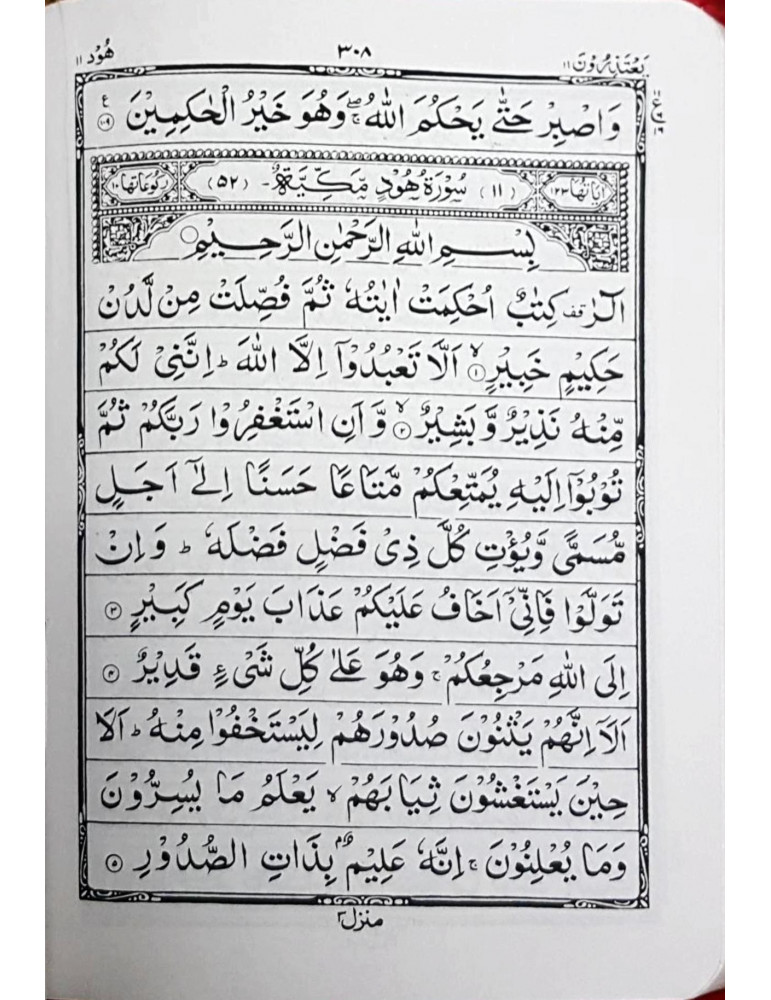 يَعْتَذِرُوْنَ ١١ ٣٠٨ هُوْد ١١
وَاصْبِرْ حَتّٰى يَحْكُمَ اللّٰهُ ۚۖ وَهُوَ خَيْرُ الْحٰكِمِيْنَ ﴿١٠٩﴾
اٰيَاتُهَا ١٢٣ (١١) سُوْرَةُ هُوْدٍ مَّكِّيَّةٌ (٥٢) رُكُوْعَاتُهَا ١٠
بِسْمِ اللّٰهِ الرَّحْمٰنِ الرَّحِيْمِ
الٓرٰ قف كِتٰبٌ اُحْكِمَتْ اٰيٰتُهٗ ثُمَّ فُصِّلَتْ مِنْ لَّدُنْ
حَكِيْمٍ خَبِيْرٍ ۙ﴿١﴾ اَلَّا تَعْبُدُوْٓا اِلَّا اللّٰهَ ؕ اِنَّنِىْ لَكُمْ
مِّنْهُ نَذِيْرٌ وَّبَشِيْرٌ ۙ﴿٢﴾ وَّاَنِ اسْتَغْفِرُوْا رَبَّكُمْ ثُمَّ
تُوْبُوْۤا اِلَيْهِ يُمَتِّعْكُمْ مَّتَاعًا حَسَنًا اِلٰٓى اَجَلٍ
مُّسَمًّى وَّيُؤْتِ كُلَّ ذِىْ فَضْلٍ فَضْلَهٗ ؕ وَاِنْ
تَوَلَّوْا فَاِنِّىْۤ اَخَافُ عَلَيْكُمْ عَذَابَ يَوْمٍ كَبِيْرٍ ﴿٣﴾
اِلَى اللّٰهِ مَرْجِعُكُمْ ۚ وَهُوَ عَلٰى كُلِّ شَىْءٍ قَدِيْرٌ ﴿٤﴾
اَلَاۤ اِنَّهُمْ يَثْنُوْنَ صُدُوْرَهُمْ لِيَسْتَخْفُوْا مِنْهُ ؕ اَلَا
حِيْنَ يَسْتَغْشُوْنَ ثِيَابَهُمْ ۙ يَعْلَمُ مَا يُسِرُّوْنَ
وَمَا يُعْلِنُوْنَ ۚ اِنَّهٗ عَلِيْمٌۢ بِذَاتِ الصُّدُوْرِ ﴿٥﴾
منزل ٣